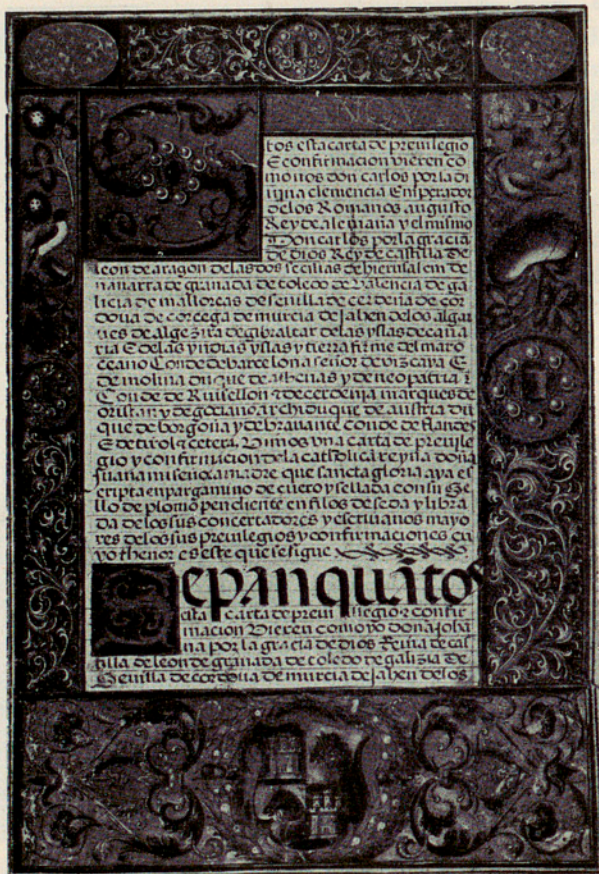 tos esta carta de preuilegio
E confirmacion vieren co
mo nos don carlos por la di
uina clemencia Emperador
de los Romanos augusto
Rey de alemaña y el mismo
Don carlos por la gracia
de dios Rey de castilla de
leon de aragon delas dos secilias de hierusalem de
nauarra de granada de toledo de valencia de ga
licia de mallorcas de seuilla de cerdeña de cor
doua de corcega de murcia de Jahen delos algar
ues de algezira de gibraltar delas yslas de cana
ria E delas yndias yslas y tierra firme del mar o
ceano Conde de barcelona señor de vizcaya E
de molina duque de athenas y de neopatria
Conde de Ruisellon de cerdenia marques de
oristan y de gociano archiduque de austria du
que de borgoña y de brauante conde de flandes
E de tirol cetera. Vimos vna carta de preuile
gio y confirmacion de la catholica reyna doña
Juana mi señora madre que sancta gloria aya es
cripta en pargamino de cuero y sellada con su Se
llo de plomo pendiente en filos de seda y libra
da de los sus concertadores y escriuanos mayo
res delos sus preuilegios y confirmaciones cu
yo thenor es este que se sigue
Sepan quãtos
esta carta de preui llegio e confir
macion Vieren como yo doña Joha
na por la gracia de dios Reina de cas
tilla de leon de granada de toledo de galizia de
Seuilla de cordoua de murcia de jahen delos